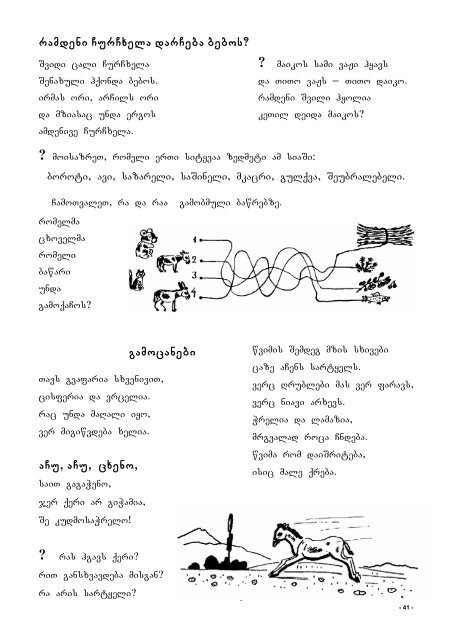 რამდენი ჩურჩხელა დარჩება ბებოს?
შვიდი ცალი ჩურჩხელა
შენახული ჰქონდა ბებოს.
ირმას ორი, არჩილს ორი
და მზიასაც უნდა ერგოს
ამდენივე ჩურჩხელა.
? მაიკოს სამი ვაჟი ჰყავს
და თითო ვაჟს – თითო დაიკო.
რამდენი შვილი ჰყოლია
კეთილ დეიდა მაიკოს?
? მოისაზრეთ, რომელი ერთი სიტყვაა ზედმეტი ამ სიაში:
ბოროტი, ავი, საზარელი, საშინელი, მკაცრი, გულქვა, შეუბრალებელი.
ჩამოთვალეთ, რა და რაა გამობმული ბაწრებზე.
რომელმა
ცხოველმა
რომელი
ბაწარი
უნდა
გამოქაჩოს?
1
2
3
4
გამოცანები
თავს გვაფარია სხვენივით,
ცისფერია და ვრცელია.
რაც უნდა მაღალი იყო,
ვერ მიგიწვდება ხელია.
აჩუ, აჩუ, ცხენო,
საით გაგაჭენო,
ჯერ ქერი არ გიჭამია,
შე კუდმოსაჭრელო!
? რას ჰგავს ქერი?
რით განსხვავდება მისგან?
რა არის სარტყელი?
წვიმის შემდეგ მზის სხივები
ცაზე აჩენს სარტყელს.
ვერც ღრუბლები მას ვერ ფარავს,
ვერც ნიავი არხევს.
ჭრელია და ლამაზია,
მრგვალად როცა ჩნდება.
წვიმა რომ დაიშრიტება,
ისიც მალე ქრება.
- 41 -